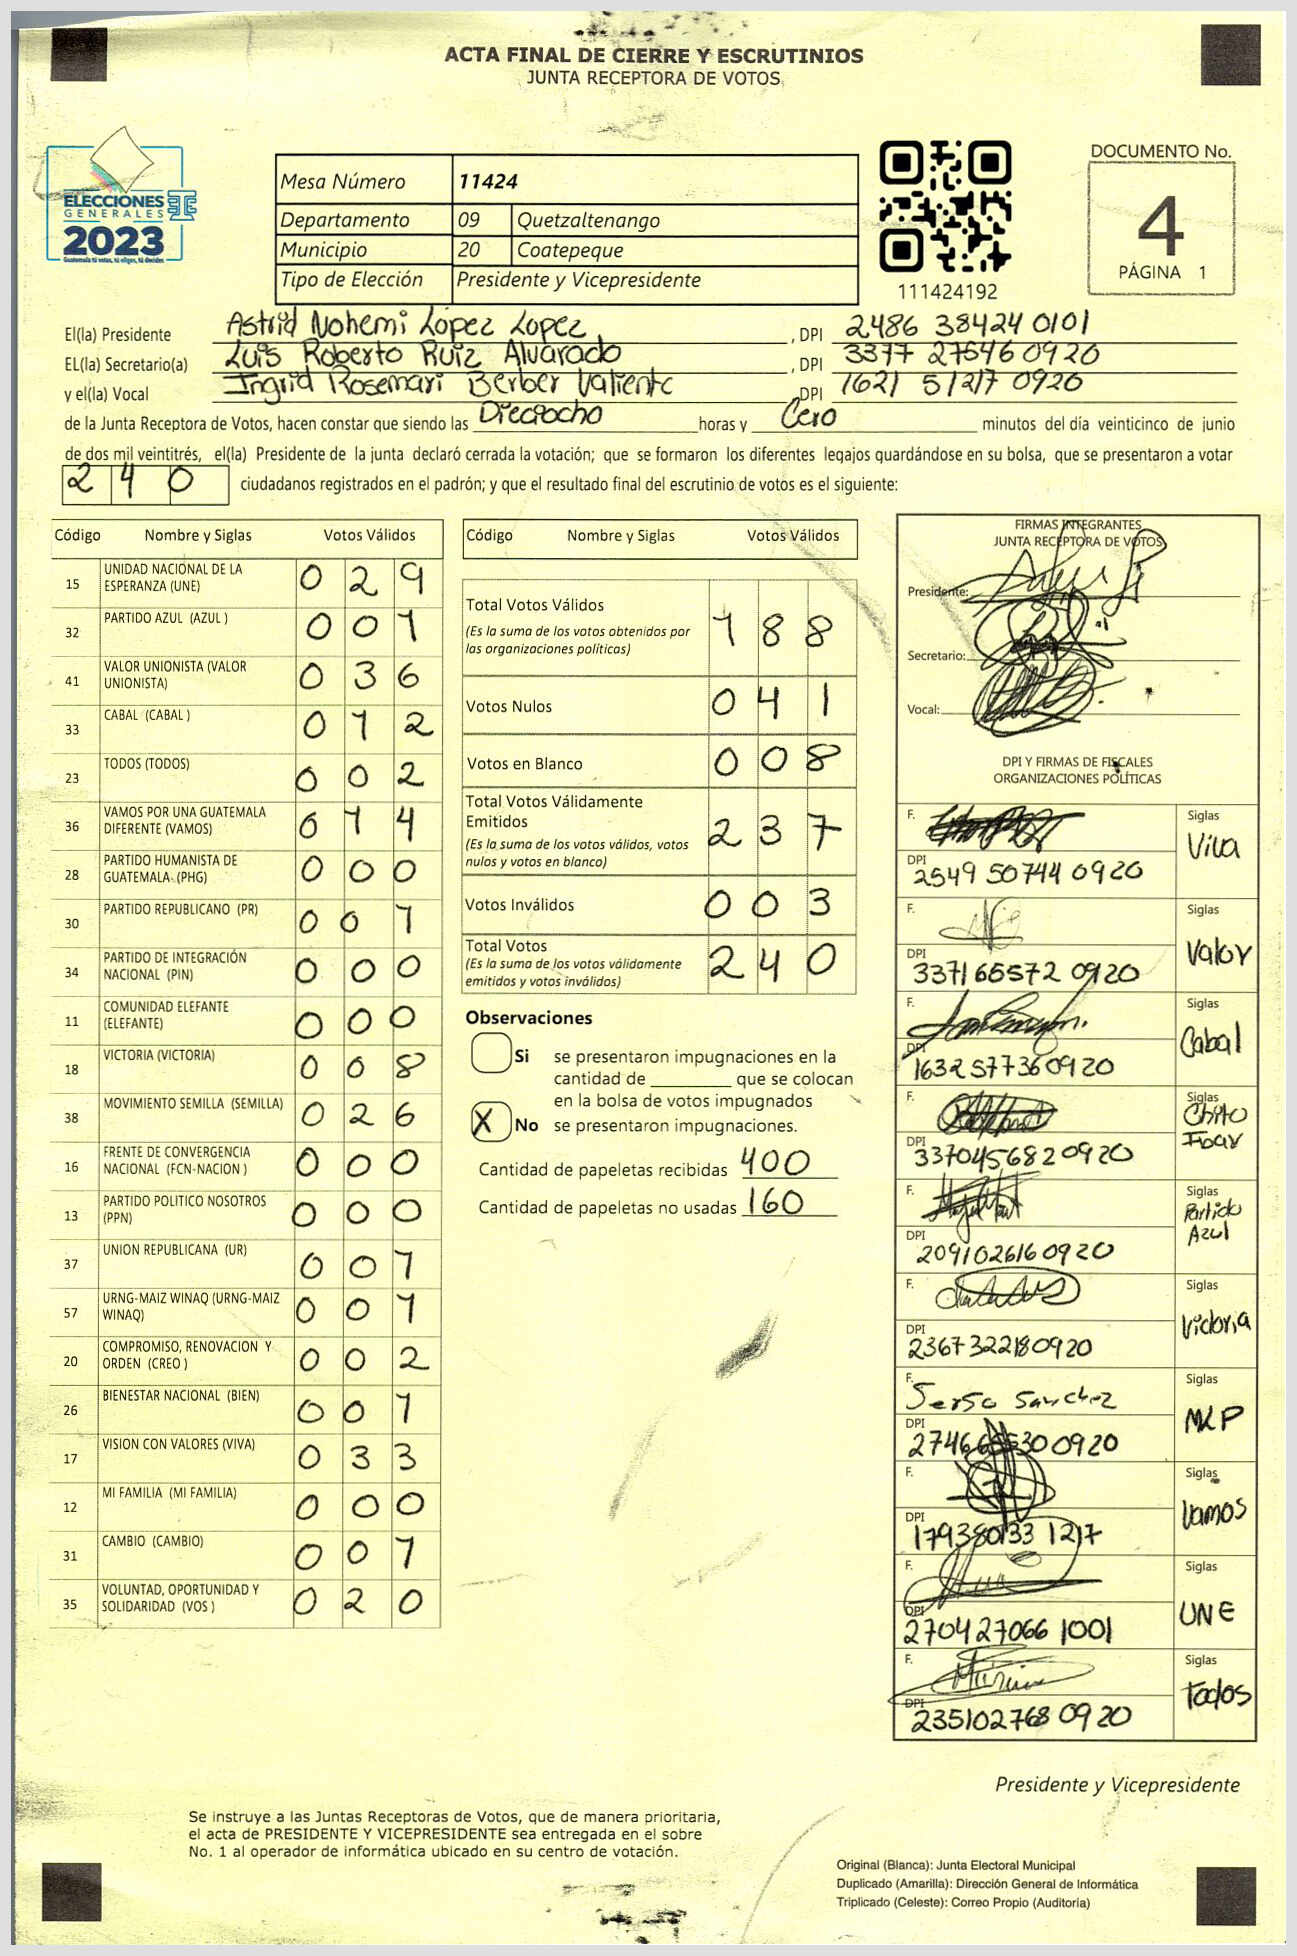 ACTA FINAL DE CIERRE Y ESCRUTINIOS
JUNTA RECEPTORA DE VOTOS
ELECCIONES
GENERALES
2023
Guatemala tú votas, tú eliges, tú decides
Mesa Número 11424
Departamento 09 Quetzaltenango
Municipio 20 Coatepeque
Tipo de Elección Presidente y Vicepresidente
111424192
DOCUMENTO No.
4
PÁGINA 1
El(la) Presidente Astrid Nohemi López Lopez, DPI 2486 38424 0101
EL(la) Secretario(a) Luis Roberto Ruiz Alvarado, DPI 3377 27546 0920
y el(la) Vocal Ingrid Rosemari Berber Valiente, DPI 1621 51217 0920
de la Junta Receptora de Votos, hacen constar que siendo las Dieciocho horas y Cero minutos del día veinticinco de junio
de dos mil veintitrés, el(la) Presidente de la junta declaró cerrada la votación; que se formaron los diferentes legajos guardándose en su bolsa, que se presentaron a votar
240 ciudadanos registrados en el padrón; y que el resultado final del escrutinio de votos es el siguiente:
Código Nombre y Siglas Votos Válidos
15 UNIDAD NACIONAL DE LA ESPERANZA (UNE) 0 2 9
32 PARTIDO AZUL (AZUL ) 0 0 1
41 VALOR UNIONISTA (VALOR UNIONISTA) 0 3 6
33 CABAL (CABAL ) 0 1 2
23 TODOS (TODOS) 0 0 2
36 VAMOS POR UNA GUATEMALA DIFERENTE (VAMOS) 0 1 4
28 PARTIDO HUMANISTA DE GUATEMALA (PHG) 0 0 0
30 PARTIDO REPUBLICANO (PR) 0 0 1
34 PARTIDO DE INTEGRACIÓN NACIONAL (PIN) 0 0 0
11 COMUNIDAD ELEFANTE (ELEFANTE) 0 0 0
18 VICTORIA (VICTORIA) 0 0 8
38 MOVIMIENTO SEMILLA (SEMILLA) 0 2 6
16 FRENTE DE CONVERGENCIA NACIONAL (FCN-NACION ) 0 0 0
13 PARTIDO POLITICO NOSOTROS (PPN) 0 0 0
37 UNION REPUBLICANA (UR) 0 0 1
57 URNG-MAIZ WINAQ (URNG-MAIZ WINAQ) 0 0 1
20 COMPROMISO, RENOVACION Y ORDEN (CREO ) 0 0 2
26 BIENESTAR NACIONAL (BIEN) 0 0 1
17 VISION CON VALORES (VIVA) 0 3 3
12 MI FAMILIA (MI FAMILIA) 0 0 0
31 CAMBIO (CAMBIO) 0 0 1
35 VOLUNTAD, OPORTUNIDAD Y SOLIDARIDAD (VOS ) 0 2 0
Código Nombre y Siglas Votos Válidos
Total Votos Válidos 1 8 8
(Es la suma de los votos obtenidos por
las organizaciones políticas)
Votos Nulos 0 4 1
Votos en Blanco 0 0 8
Total Votos Válidamente
Emitidos 2 3 7
(Es la suma de los votos válidos, votos
nulos y votos en blanco)
Votos Inválidos 0 0 3
Total Votos 2 4 0
(Es la suma de los votos válidamente
emitidos y votos inválidos)
Observaciones
Si se presentaron impugnaciones en la
cantidad de ________ que se colocan
en la bolsa de votos impugnados
X No se presentaron impugnaciones.
Cantidad de papeletas recibidas 400
Cantidad de papeletas no usadas 160
FIRMAS INTEGRANTES
JUNTA RECEPTORA DE VOTOS
Presidente:
Secretario:
Vocal:
DPI Y FIRMAS DE FISCALES
ORGANIZACIONES POLÍTICAS
F. Siglas Viva
DPI 2549 50744 0920
F. Siglas Valor
DPI 3371 65572 0920
F. Siglas Cabal
DPI 1632 57736 0920
F. Siglas
DPI 3370456820920
F. Siglas Partido Azul
DPI 2091026160920
F. Siglas Victoria
DPI 2367322180920
F. Siglas MLP
DPI 2746655300920
F. Siglas Vamos
DPI 179380133 1217
F. Siglas UNE
DPI 2704 27066 1001
F. Siglas Todos
DPI 235102768 0920
Presidente y Vicepresidente
Se instruye a las Juntas Receptoras de Votos, que de manera prioritaria,
el acta de PRESIDENTE Y VICEPRESIDENTE sea entregada en el sobre
No. 1 al operador de informática ubicado en su centro de votación.
Original (Blanca): Junta Electoral Municipal
Duplicado (Amarilla): Dirección General de Informática
Triplicado (Celeste): Correo Propio (Auditoría)